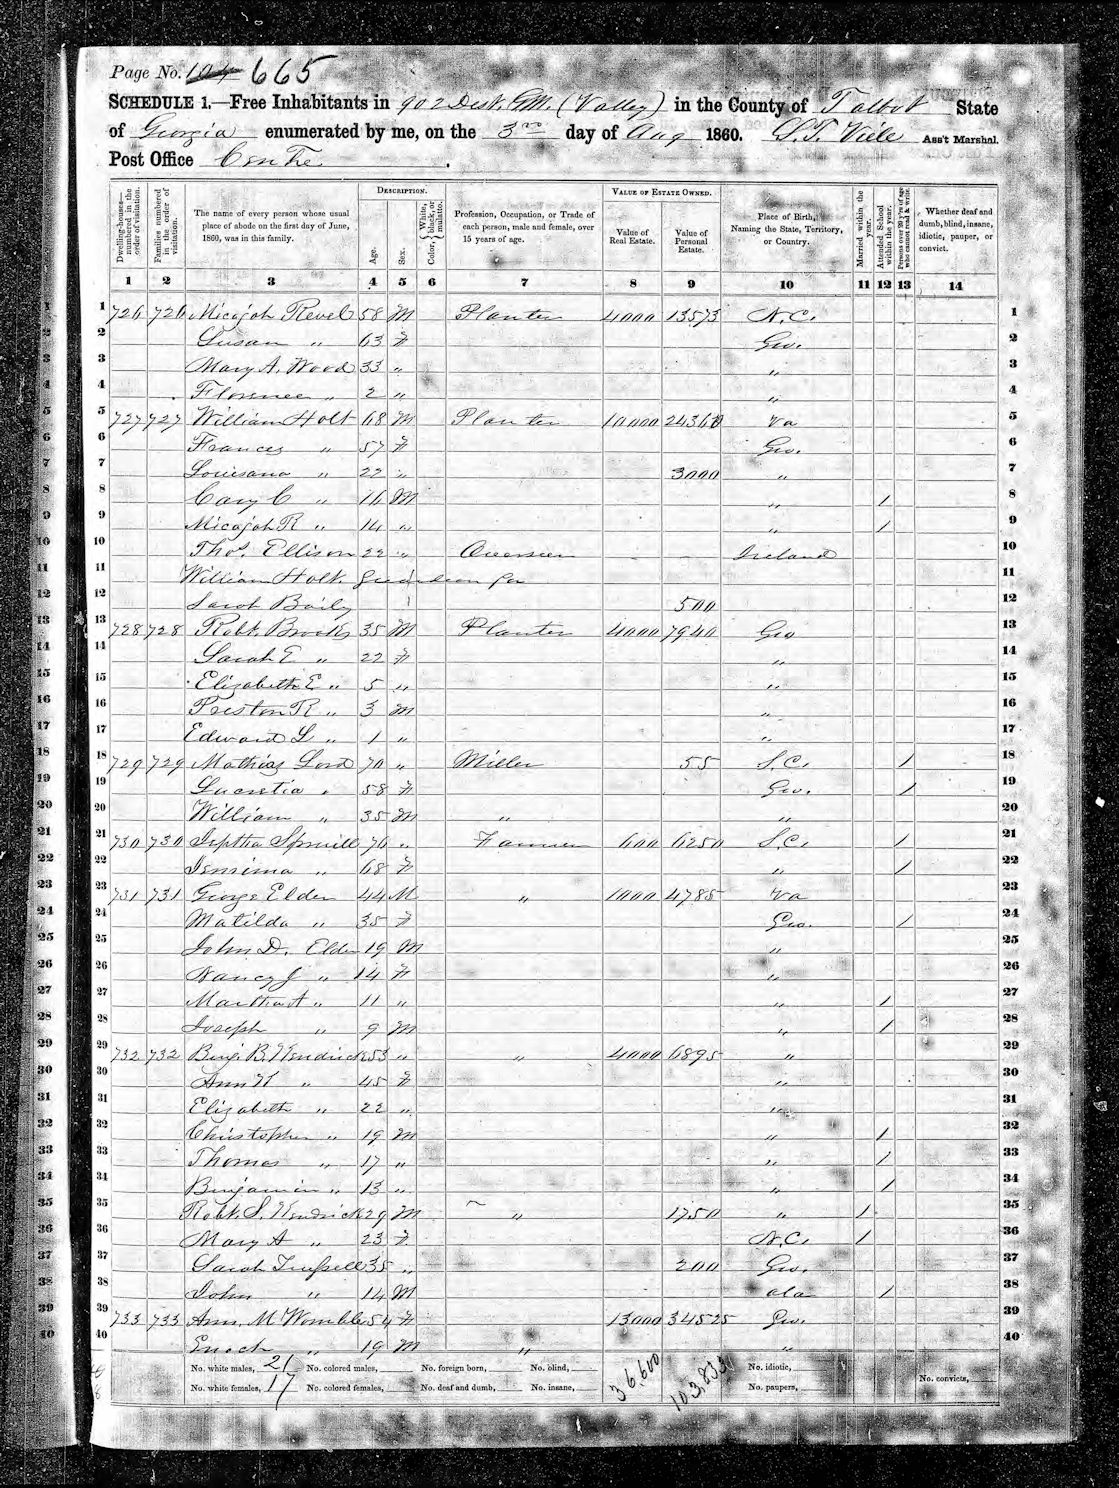 Page No. 104 665
SCHEDULE 1.—Free Inhabitants in 902 Dist. G.M. (Valley) in the County of Talbot State
of Georgia enumerated by me, on the 3rd day of Aug 1860. S. T. Viele Ass't Marshal.
Post Office Centre.
Dwelling-houses— numbered in the order of visitation.
Families numbered in the order of visitation.
The name of every person whose usual place of abode on the first day of June, 1860, was in this family.
DESCRIPTION.
Age.
Sex.
Color, { White, black, or mulatto.
Profession, Occupation, or Trade of each person, male and female, over 15 years of age.
VALUE OF ESTATE OWNED.
Value of Real Estate.
Value of Personal Estate.
Place of Birth, Naming the State, Territory, or Country.
Married within the year.
Attended School within the year.
Persons over 20 y'rs of age who cannot read & write.
Whether deaf and dumb, blind, insane, idiotic, pauper, or convict.
1 2 3 4 5 6 7 8 9 10 11 12 13 14
1 726 726 Micajah Revel 58 M Planter 4000 13573 N.C. 1
2 Susan " 63 F Geo. 2
3 Mary A. Wood 33 " " 3
4 Florence " 2 " " 4
5 727 727 William Holt 68 M Planter 10000 24360 Va 5
6 Frances " 57 F Geo. 6
7 Louisana " 22 " 3000 " 7
8 Cary C " 16 M " 1 8
9 Micajah R " 14 " " 1 9
10 Thos. Ellison 22 " Overseer Ireland 10
11 William Holt Guardean for 11
12 Sarah Baily 500 12
13 728 728 Robt. Brooks 35 M Planter 4000 7940 Geo 13
14 Sarah E " 22 F " 14
15 Elizabeth E " 5 " " 15
16 Preston R " 3 M " 16
17 Edward L " 1 " " 17
18 729 729 Mathias Lord 70 " Miller 55 S.C. 1 18
19 Lucretia " 58 F Geo. 1 19
20 William " 35 M " " 20
21 730 730 Jeptha Spruill 70 " Farmer 600 6250 S.C. 1 21
22 Jemima " 68 F " 1 22
23 731 731 George Elder 44 M " 1000 4785 Va 23
24 Matilda " 35 F Geo. 1 24
25 John D. Elder 19 M " 25
26 Nancy J " 14 F " 26
27 Martha A " 11 " " 1 27
28 Joseph " 9 M " 1 28
29 732 732 Benj. B. Kendrick 53 " " 4000 6895 " 29
30 Ann " 45 F " 30
31 Elizabeth " 22 " " 31
32 Christopher " 19 M " 1 32
33 Thomas " 17 " " 1 33
34 Benjamin " 13 " " 1 34
35 Robt. S. Kendrick 29 M " 1750 " 1 35
36 Mary A " 23 F N.C. 1 36
37 Sarah Trussell 35 " 200 Geo. 37
38 John " 14 M Ala 1 38
39 733 733 Ann. M Womble 54 F 13000 34525 Geo. 39
40 Enoch " 19 M " " 40
No. white males, 21 No. colored males, No. foreign born, No. blind, 36,600 103,833 No. idiotic,
No. white females, 17 No. colored females, No. deaf and dumb, No. insane, No. paupers, No. convicts,